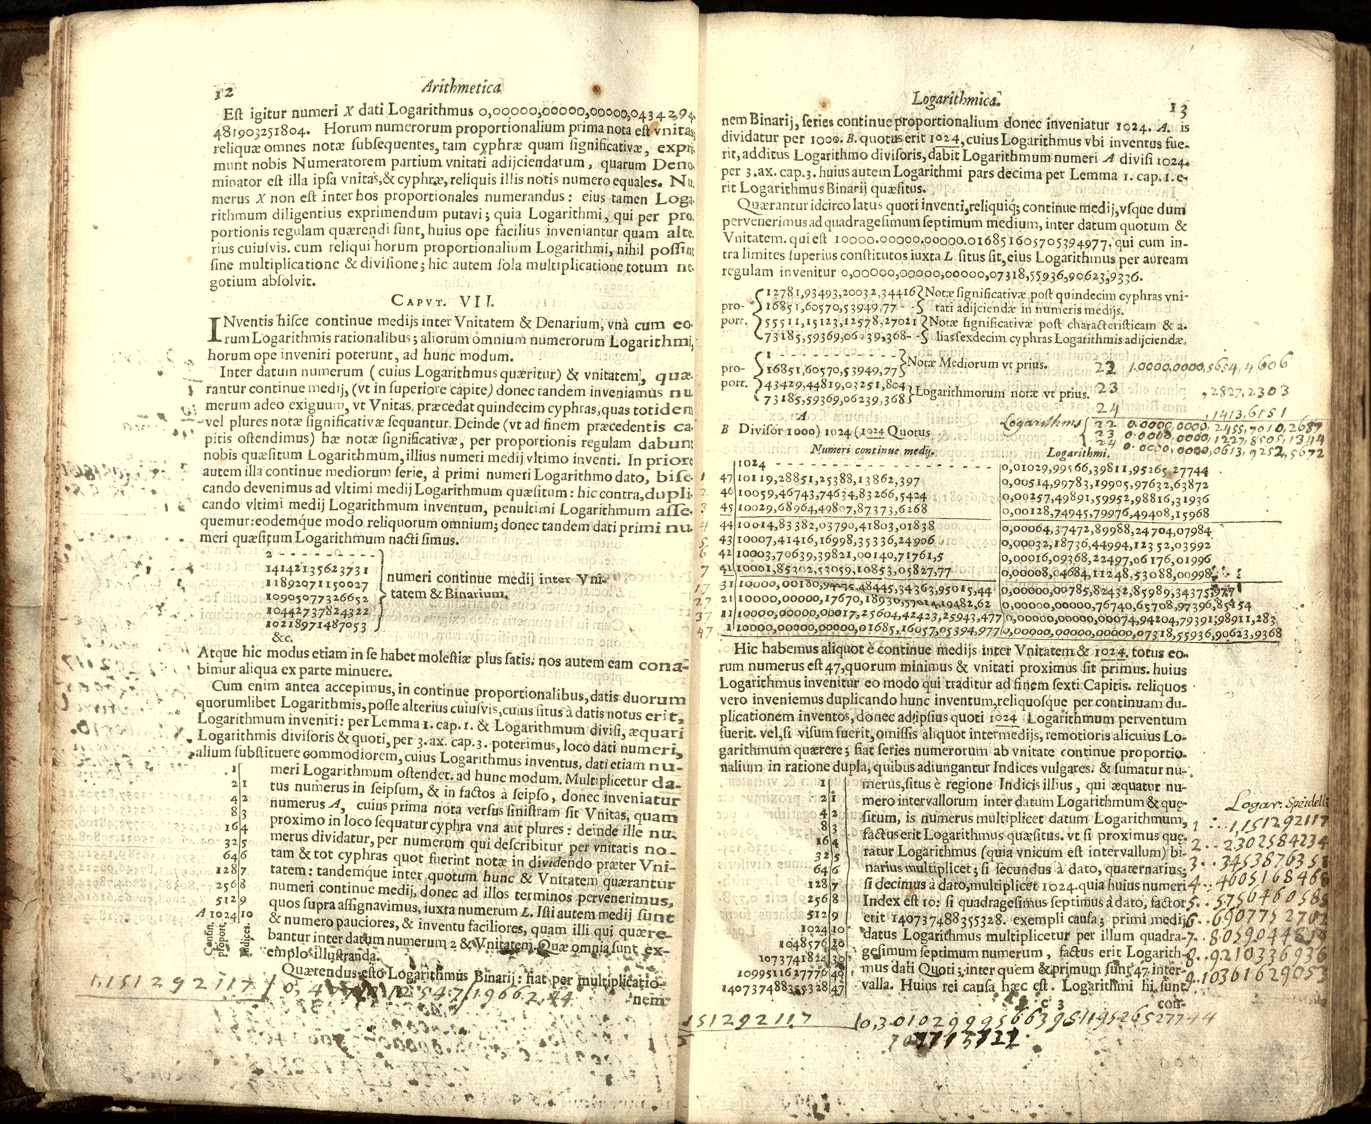 12
Arithmetica
Est igitur numeri X dati Logarithmus 0,00000,00000,00000,04342,94
481903251804. Horum numerorum proportionalium prima nota est vnitas,
reliquæ omnes notæ subsequentes, tam cyphræ quam significativæ, expri
munt nobis Numeratorem partium vnitati adijciendarum, quarum Deno
minator est illa ipsa vnitas, & cyphræ, reliquis illis notis numero equales. Nu
merus X non est inter hos proportionales numerandus: eius tamen Loga
rithmum diligentius exprimendum putavi; quia Logarithmi, qui per pro
portionis regulam quærendi sunt, huius ope facilius inveniantur quam alte
rius cuiusvis. cum reliqui horum proportionalium Logarithmi, nihil possint
sine multiplicatione & divisione; hic autem sola multiplicatione totum ne
gotium absolvit.
CAPVT. VII.
INventis hisce continue medijs inter Vnitatem & Denarium, vnà cum eo-
rum Logarithmis rationalibus; aliorum omnium numerorum Logarithmi,
horum ope inveniri poterunt, ad hunc modum.
Inter datum numerum (cuius Logarithmus quæritur) & vnitatem, quæ-
rantur continue medij, (vt in superiore capite) donec tandem inveniamus nu
merum adeo exiguum, vt Vnitas præcedat quindecim cyphras, quas totidem
vel plures notæ significativæ sequantur. Deinde (vt ad finem præcedentis ca-
pitis ostendimus) hæ notæ significativæ, per proportionis regulam dabunt
nobis quæsitum Logarithmum, illius numeri medij vltimo inventi. In priore
autem illa continue mediorum serie, à primi numeri Logarithmo dato, bise-
cando devenimus ad vltimi medij Logarithmum quæsitum: hic contra, dupli
cando vltimi medij Logarithmum inventum, penultimi Logarithmum asse-
quemur: eodemque modo reliquorum omnium; donec tandem dati primi nu
meri quæsitum Logarithmum nacti simus.
2 - - - - - - - -
14142135623731
11892071150027
10905077326652
10442737824322
10218971487053
&c.
numeri continue medij inter Vni-
tatem & Binarium.
Atque hic modus etiam in se habet molestiæ plus satis. nos autem eam cona-
bimur aliqua ex parte minuere.
Cum enim antea accepimus, in continue proportionalibus, datis duorum
quorumlibet Logarithmis, posse alterius cuiusvis, cuius situs à datis notus erit,
Logarithmum inveniri: per Lemma 1. cap. 1. & Logarithmum divisi, æquari
Logarithmis divisoris & quoti, per 3. ax. cap. 3. poterimus, loco dati numeri,
alium substituere commodiorem, cuius Logarithmus inventus, dati etiam nu-
meri Logarithmum ostendet. ad hunc modum. Multiplicetur da-
tus numerus in seipsum, & in factos à seipso, donec inveniatur
numerus A, cuius prima nota versus sinistram sit Vnitas, quam
proximo in loco sequatur cyphra vna aut plures: deinde ille nu-
merus dividatur, per numerum qui describitur per vnitatis no-
tam & tot cyphras quot fuerint notæ in dividendo præter Vni-
tatem: tandemque inter quotum hunc & Vnitatem quærantur
numeri continue medij, donec ad illos terminos pervenerimus,
quos supra assignavimus, iuxta numerum L. Isti autem medij sunt
& numero pauciores, & inventu faciliores, quam illi qui quære-
bantur inter datum numerum 2 & Vnitatem. Quæ omnia sunt ex-
emplo illustranda.
1
2 1
4 2
8 3
16 4
32 5
64 6
128 7
256 8
512 9
A 1024 10
Contin. proport.
Indices.
Quærendus esto Logarithmus Binarij: fiat per multiplicatio-
nem
1,151292117
Logarithmica.
13
nem Binarij, series continue proportionalium donec inveniatur 1024. A. is
dividatur per 1000. B. quotus erit 1024, cuius Logarithmus vbi inventus fue-
rit, additus Logarithmo divisoris, dabit Logarithmum numeri A divisi 1024.
per 3. ax. cap. 3. huius autem Logarithmi pars decima per Lemma 1. cap. 1. e-
rit Logarithmus Binarij quæsitus.
Quærantur idcirco latus quoti inventi, reliquiq; continue medij, vsque dum
pervenerimus ad quadragesimum septimum medium, inter datum quotum &
Vnitatem. qui est 10000.00000.00000.01685160570539 4977. qui cum in-
tra limites superius constitutos iuxta L situs sit, eius Logarithmus per auream
regulam invenitur 0,00000,00000,00000,07318,55936,90623,9336.
pro-
port.
12781,93493,20032,34416
16851,60570,53949,77 - -
55511,15123,12578,27021
73185,59369,06239,368 - -
Notæ significativæ post quindecim cyphras vni-
tati adijciendæ in numeris medijs.
Notæ significativæ post characteristicam & a-
lias sexdecim cyphras Logarithmis adijciendæ.
pro-
port.
1 - - - - - - - -
16851,60570,53949,77
43429,44819,03251,804
73185,59369,06239,368
Notæ Mediorum vt prius.
Logarithmorum notæ vt prius.
22 1.0000,0000,5654,4606
23 ,2827,2303
24 ,1413,6151
Logarithms
22 0.0000,0000,2455,7010,2687
23 0.0000,0000,1227,8505,1344
24 0.0000,0000,0613,9252,5672
A
B Divisor 1000) 1024 (1024 Quotus
Numeri continue medij.
Logarithmi.
1024 - - - - - - - - 0,01029,99566,39811,95265,27744
47 10119,28851,25388,13862,397 0,00514,99783,19905,97632,63872
46 10059,46743,74634,83266,5424 0,00257,49891,59952,98816,31936
45 10029,68964,49807,87373,6268 0,00128,74945,79976,49408,15968
44 10014,83382,03790,41803,01838 0,00064,37472,89988,24704,07984
43 10007,41416,16998,35336,24906 0,00032,18736,44994,12352,03992
42 10003,70639,39821,00140,71761,5 0,00016,09368,22497,06176,01996
41 10001,85302,53059,10853,05827,77 0,00008,04684,11248,53088,00998
31 10000,00180,94435,48445,34363,95015,44 0,00000,00785,82432,85989,34375,927
21 10000,00000,17670,18930,57014,19482,62 0,00000,00000,76740,65708,97396,85454
11 10000,00000,00017,25604,42423,25943,477 0,00000,00000,00074,94204,79391,98911,283
1 10000,00000,00000,01685,16057,05394,977 0,00000,00000,00000,07318,55936,90623,9368
Hic habemus aliquot è continue medijs inter Vnitatem & 1024. totus eo-
rum numerus est 47, quorum minimus & vnitati proximus sit primus. huius
Logarithmus invenitur eo modo qui traditur ad finem sexti Capitis. reliquos
vero inveniemus duplicando hunc inventum, reliquosque per continuam du-
plicationem inventos, donec ad ipsius quoti 1024 Logarithmum perventum
fuerit. vel, si visum fuerit, omissis aliquot intermedijs, remotioris alicuius Lo-
garithmum quærere; fiat series numerorum ab vnitate continue proportio-
nalium in ratione dupla, quibus adiungantur Indices vulgares. & sumatur nu-
merus, situs è regione Indicis illius, qui æquatur nu-
mero intervallorum inter datum Logarithmum & que-
situm, is numerus multiplicet datum Logarithmum,
factus erit Logarithmus quæsitus. vt si proximus que
ratur Logarithmus (quia vnicum est intervallum) bi-
narius multiplicet; si secundus à dato, quaternarius;
si decimus à dato, multiplicet 1024. quia huius numeri
Index est 10: si quadragesimus septimus à dato, factor
erit 140737488355328. exempli causa; primi medij
datus Logarithmus multiplicetur per illum quadra-
gesimum septimum numerum, factus erit Logarith-
mus dati Quoti; inter quem & primum sunt 47 inter-
valla. Huius rei causa hæc est. Logarithmi hi sunt
con-
1
2 1
4 2
8 3
16 4
32 5
64 6
128 7
256 8
512 9
1024 10
1048576 20
1073741824 30
1099511627776 40
140737488355328 47
Logar. Speidell
1 . . 1,151292117
2 . . 2302584234
3 . . 3453876351
4 . . 4605168468
5 . . 5756460585
6 . . 6907752702
7 . . 8059044819
8 . . 9210336936
9 . . 10361629053
151292117
10,30102999566398119526527744